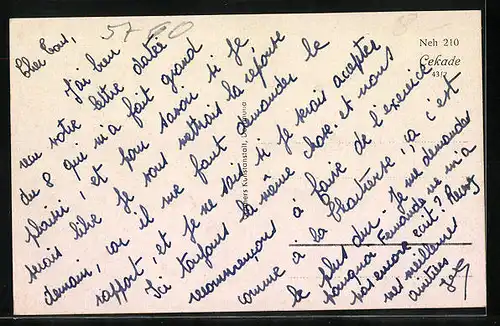 5760
8
Neh 210
Cekade
43/2
Cher Tous,
J'ai bien
reçu votre lettre datée
du 8 qui m'a fait grand
plaisir et pour savoir si je
serais libre je vous mettrais la réponse
demain, car il me faut demander le
rapport, et je ne sais si je serais acceptée
Ici toujours la même chose et nous
recommençons à faire de l'exercice
comme à la Chartreuse, ça c'est
le plus dur. Je me demande
pourquoi Fernande ne m'a
pas encore écrit ? Reçoit
mes meilleures
amitiés
Kunstanstalt,